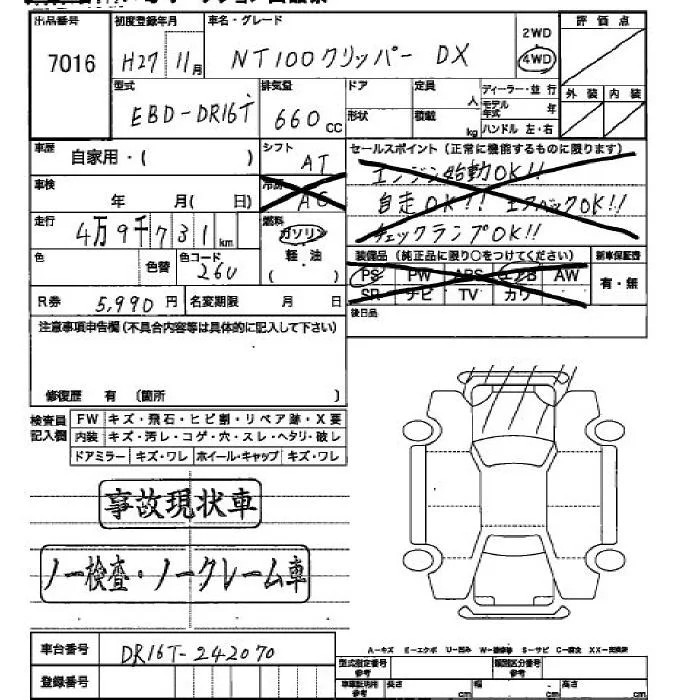 出品番号 初度登録年月 車名・グレード 2WD 評価点
7016 H27 11月 NT100クリッパー DX 4WD
型式 排気量 ドア 定員 人 ディーラー・並行 外装 内装
EBD-DR16T 660cc 形状 積載 kg モデル年式 年
ハンドル 左・右
車歴 自家用・( ) シフト AT セールスポイント(正常に機能するものに限ります)
エンジン始動OK!!
車検 年 月( 日) 冷房 AC 自走OK!! エアバックOK!!
走行 4万9千731km 燃料 ガソリン チェックランプOK!!
色 色替 色コード 26U 軽油 ( ) 装備品(純正品に限り○をつけてください) 新車保証書
PS PW ABS エアB AW 有・無
R券 5,990円 名変期限 月 日 SR ナビ TV カワ
注意事項申告欄(不具合内容等は具体的に記入して下さい) 後日品
修復歴 有 〔箇所 〕
検査員記入欄 FW キズ・飛石・ヒビ割・リペア跡・X要
内装 キズ・汚レ・コゲ・穴・スレ・ヘタリ・破レ
ドアミラー キズ・ワレ ホイール・キャップ キズ・ワレ
事故現状車
ノー検査・ノークレーム車
A-キズ E-エクボ U-凹み W-補修跡 S-サビ C-腐食 XX-交換済
車台番号 DR16T-242070 型式指定番号 参考 類別区分番号 参考
登録番号 車車証明用 参考 長さ cm 幅 cm 高さ cm